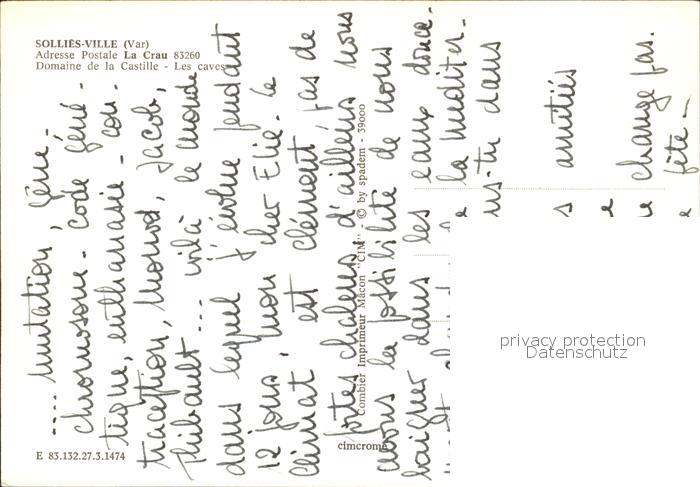 SOLLIÈS-VILLE (Var)
Adresse Postale La Crau 83260
Domaine de la Castille - Les caves
.... mutation, gène -
chromosome - code géné -
tique, euthanasie - con -
traception, Monod, Jacob,
Thibault ... voilà le monde
dans lequel j'évolue pendant
12 jours, mon cher Elie. Le
climat est clément, pas de
fortes chaleurs, d'ailleurs nous
avons la possibilité de nous
baigner dans les eaux douce-
la méditer-
us-tu dans
s amitiés
e
change pas.
e fête -
Combier Imprimeur Mâcon "CIM" - © by spadem - 39000
cimcrome
E 83.132.27.3.1474
privacy protection
Datenschutz